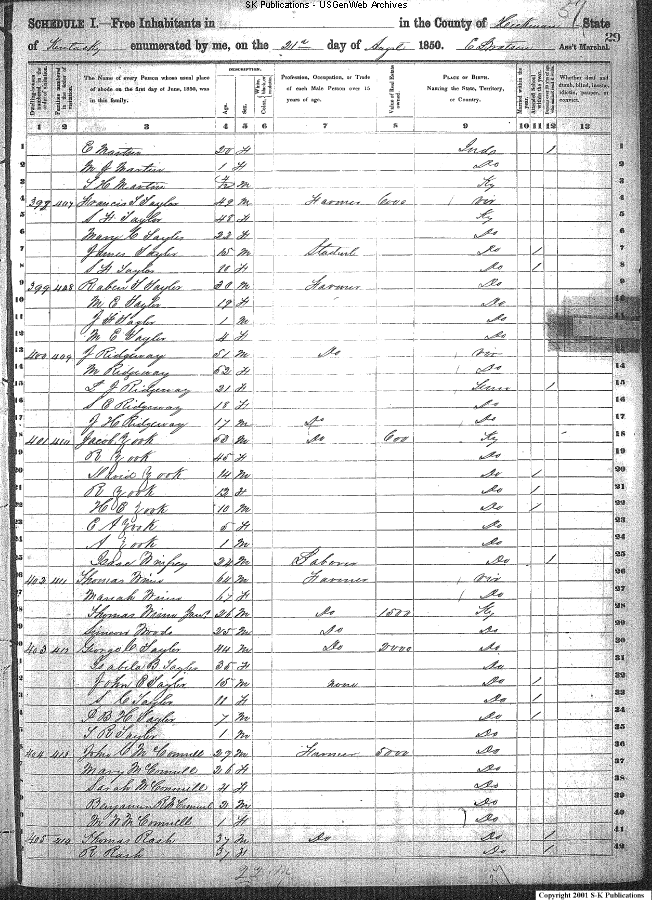 SK Publications - USGenWeb Archives
SCHEDULE I.—Free Inhabitants in in the County of Hickman State
of Kentucky enumerated by me, on the 21st day of Augt 1850. Ass't Marshal.
29
Dwelling-houses numbered in the order of visitation.
Families numbered in the order of visitation.
The Name of every Person whose usual place of abode on the first day of June, 1850, was in this family.
DESCRIPTION.
Age.
Sex.
White, Color, black, or mulatto.
Profession, Occupation, or Trade of each Male Person over 15 years of age.
Value of Real Estate owned
PLACE OF BIRTH. Naming the State, Territory, or Country.
Married within the year.
Attended School within the year.
Whether deaf and dumb, blind, insane, idiotic, pauper, or convict.
1 2 3 4 5 6 7 8 9 10 11 12 13
1 E Martin 20 F 1 1
2 M J Martin 1 F Do 2
3 S H Martin M Ky 3
4 398 407 Francis T Taylor 49 M Farmer 600 Vir 4
5 S H Taylor 48 F Ky 5
6 Mary C Taylor 22 F Do 6
7 James Taylor 15 M Student Do 1 7
8 S H Taylor 11 F Do 1 8
9 399 408 Ruben T Taylor 30 M Farmer Do 9
10 M E Taylor 19 F Do
11 J H Taylor 1 M Do
12 M E Taylor 4 F Do
13 400 409 J Ridgeway 51 M Do Vir
14 M Ridgeway 52 F Do 14
15 L J Ridgeway 21 F Tenn 1 15
16 S E Ridgeway 18 F Do 16
17 J H Ridgeway 17 M Do Do 17
18 401 410 Jacob Zook 50 M Do 600 Ky 18
19 R Zook 45 F Do 19
20 David Zook 14 M Do 1 20
21 R Zook 12 F Do 1 21
22 H E Zook 10 M Do 1 22
23 E A Zook 5 F Do 23
24 A Zook 1 M Do 24
25 Winfrey 24 M Laborer Do 1 25
26 402 411 Thomas Wims 64 M Farmer Vir 26
27 Mariah Wims 67 F Do 27
28 Thomas Wims Junr 26 M Do 1500 Ky 28
29 Simeon Woods 25 M Do Do 29
30 403 412 George C Taylor 44 M Do 2000 Do 30
31 Isabela B Taylor 35 F Do 31
32 John C Taylor 15 M none Do 1 32
33 S C Taylor 11 F Do 1 33
34 P B H Taylor 7 M Do 1 34
35 T R Taylor 1 M Do 35
36 404 413 John C McConnell 27 M Farmer 5000 Do 36
37 Mary McConnell 26 F Do 37
38 Sarah McConnell 4 F Do 38
39 Benjamin R McConnel 2 M Do 39
40 M N McConnell 1 F Do 40
41 405 Thomas Rash 37 M Do Do 1 41
42 R Rash 37 F Do 1 42
Copyright 2001 S-K Publications